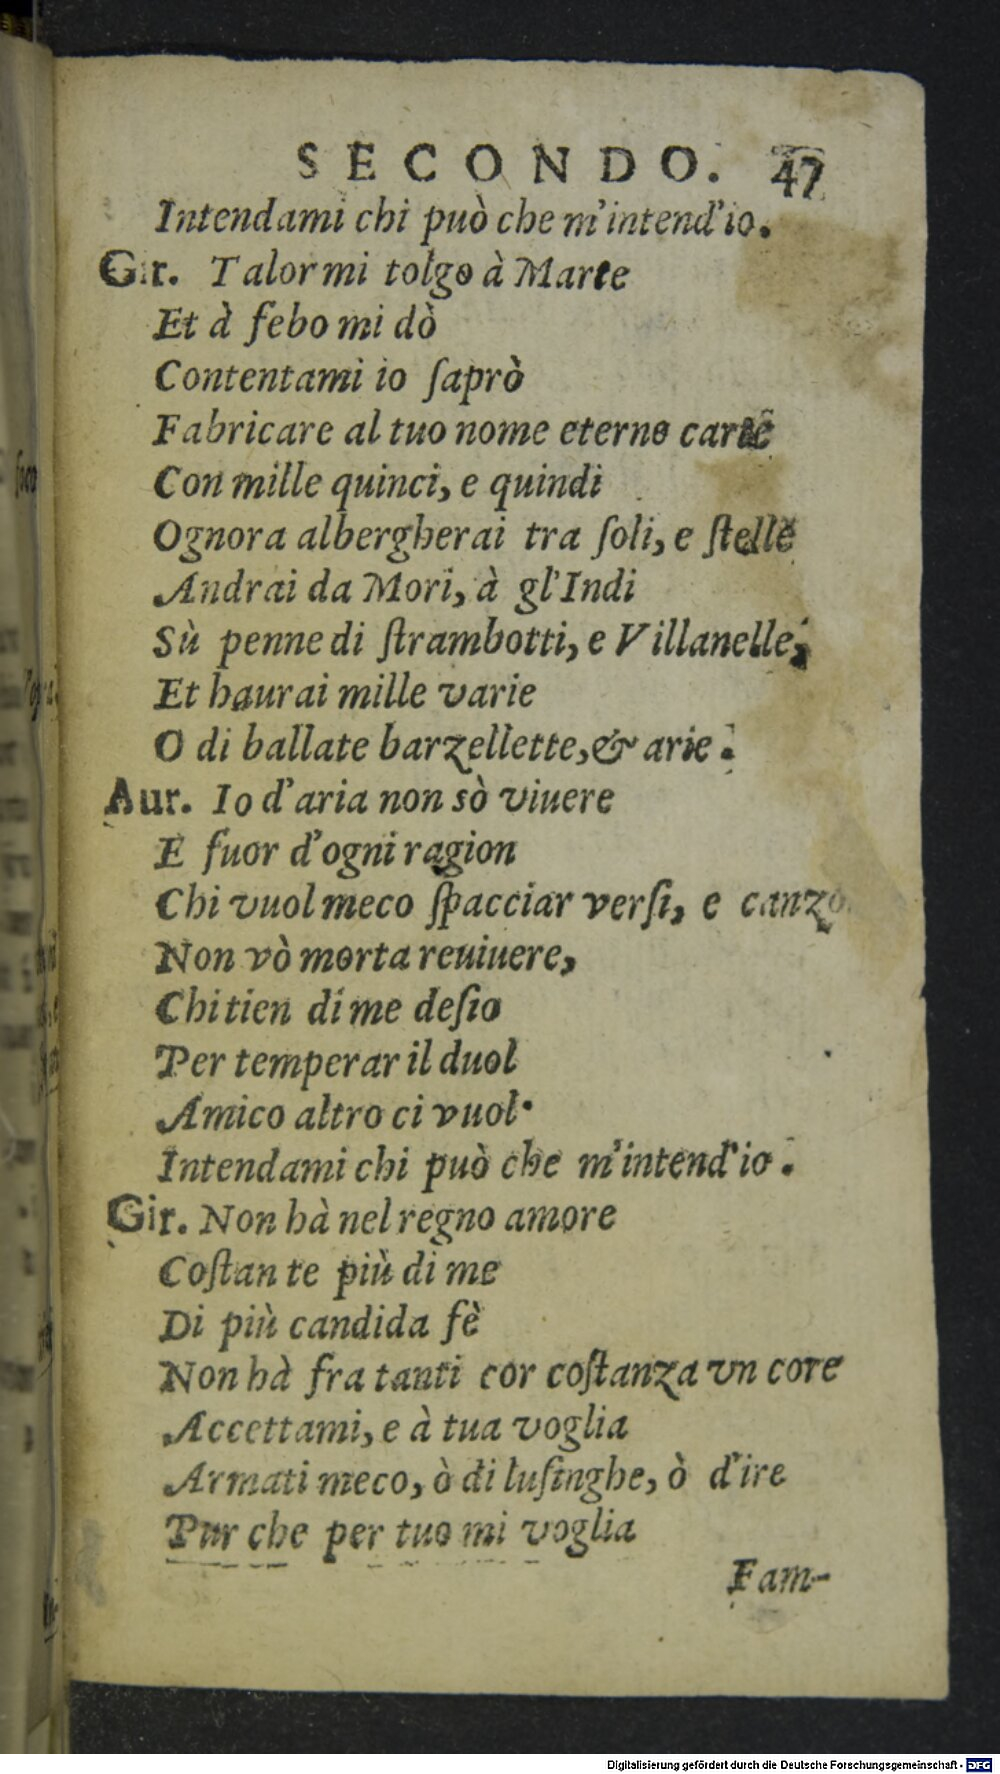 SECONDO. 47
Intendami chi può che m'intend'io.
Gir. Talor mi tolgo à Marte
Et à febo mi dò
Contentami io ſaprò
Fabricare al tuo nome eterne carte
Con mille quinci, e quindi
Ognora albergherai tra ſoli, e ſtelle
Andrai da Mori, à gl'Indi
Sù penne di ſtrambotti, e Villanelle,
Et haurai mille varie
O di ballate barzellette, & arie.
Aur. Io d'aria non sò viuere
E fuor d'ogni ragion
Chi vuol meco ſpacciar verſi, e canzo
Non vò morta reuiuere,
Chi tien di me deſio
Per temperar il duol
Amico altro ci vuol.
Intendami chi può che m'intend'io.
Gir. Non hà nel regno amore
Coſtante più di me
Di più candida fè
Non hà fra tanti cor coſtanza vn core
Accettami, e à tua voglia
Armati meco, ò di luſinghe, ò d'ire
Pur che per tuo mi voglia
Fam-
Digitalisierung gefördert durch die Deutsche Forschungsgemeinschaft - DFG